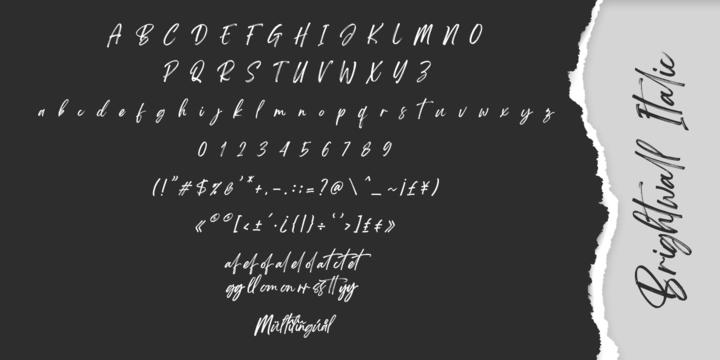 A B C D E F G H I J K L M N O
P Q R S T U V W X Y Z
a b c d e f g h i j k l m n o p q r s t u v w x y z
0 1 2 3 4 5 6 7 8 9
(!"#$%&'*+,-.:;=?@\^_~¡£¥)
«©®[<±´·¿{|}÷‘’>]₤€»
af ef of al el ol at it et
gg ll om on rr ss tt yy
Multilingual
Brightwall Italic